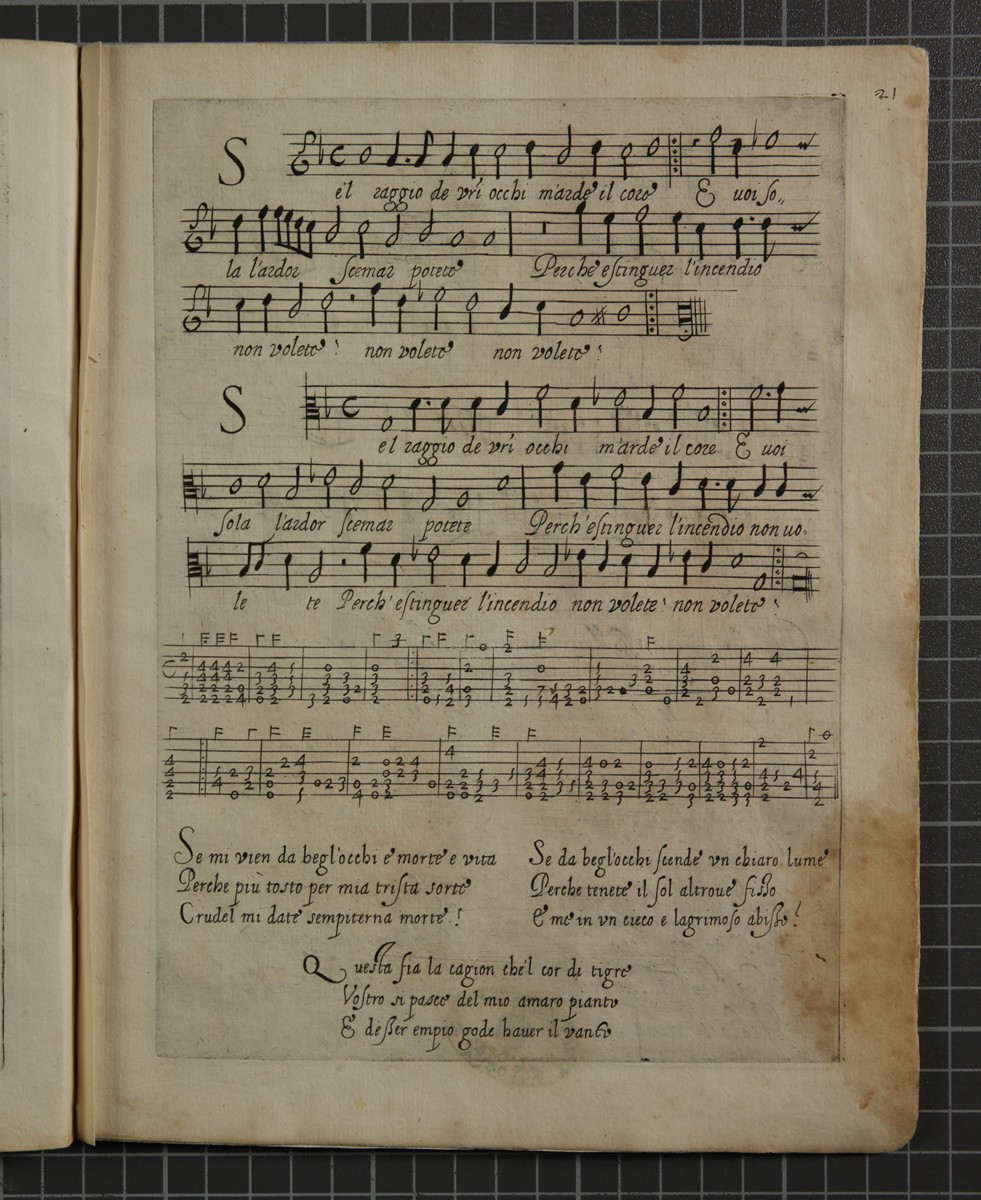 21
S
e'l raggio de vrī occhi m'arde il core E uoi so,,
la l'ardor scemar potete Perche estinguer l'incendio
non volete? non volete non volete?
S
el raggio de vrī occhi m'arde il core E uoi
sola l'ardor scemar potete Perch'estinguer l'incendio non uo-
le te Perch'estinguer l'incendio non volete? non volete?
Se mi vien da begl'occhi e morte e vita
Perche più tosto per mia trista sorte
Crudel mi date sempiterna morte?
Se da begl'occhi scende vn chiaro lume
Perche tenete il sol altroue fisso
E me in vn cieco e lagrimoso abisso?
Questa fia la cagion che'l cor di tigre
Vostro si pasce del mio amaro pianto
E desser empio gode hauer il vanto